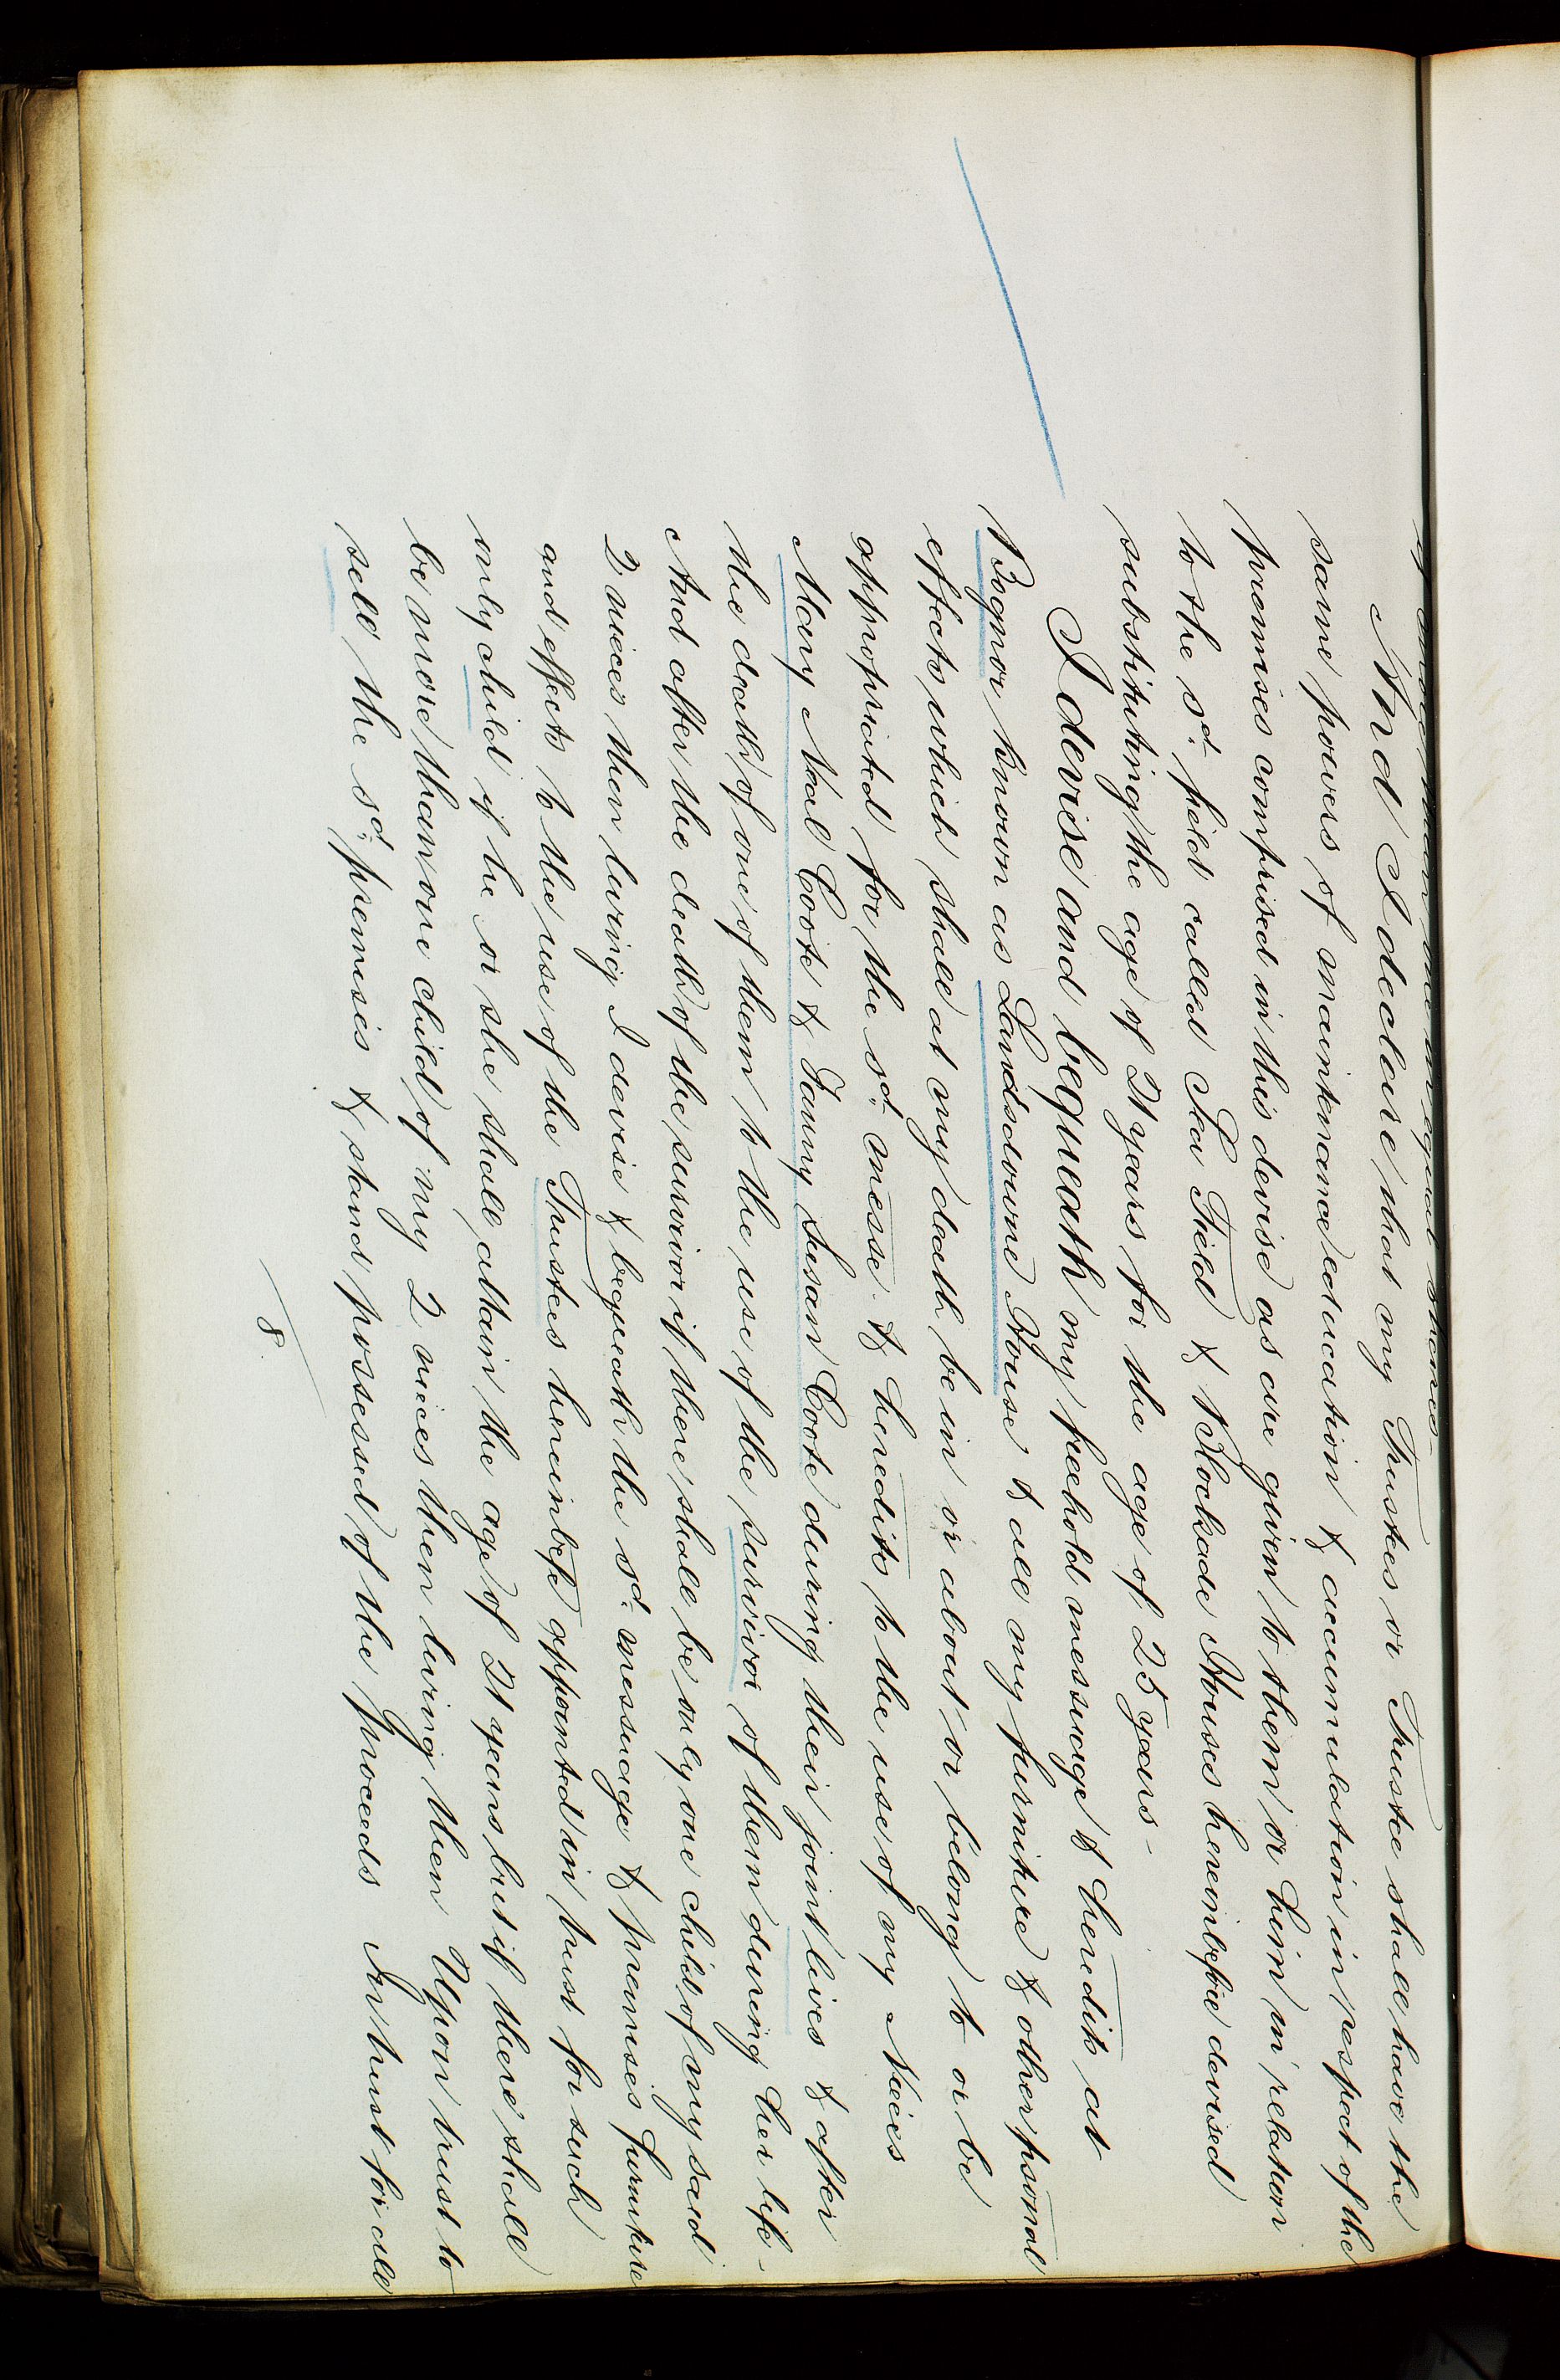 if more than one in equal shares
And I declare that my Trustees or Trustee shall have the
same powers of maintenance education & accumulation in respect of the
premises comprised in this devise as are given to them or him in relation
to the sd. field called Sea Field & Blockade Houses hereinbefore devised
substituting the age of 21 years for the age of 25 years –
I devise and bequeath my freehold messuage & heredits at
Bognor known as Landsdowne House & all my furniture & other psonal
effects which shall at my death be in or about or belong to or be
appropriated for the sd. messe. & heredits to the use of my Nieces
Mary Neal Coote & Fanny Susan Coote during their joint lives & after
the death of one of them to the use of the survivor of them during her life –
And after the death of the survivor if there shall be only one child of my said
2 nieces then living I devise & bequeath the sd. messuage & premises furniture
and effects to the use of the Trustees hereinbefe appointed in trust for such
only child if he or she shall attain the age of 21 years but if there shall
be more than one child of my 2 nieces then living then Upon trust to
sell the sd. premises & stand possessed of the proceeds In trust for all
8.